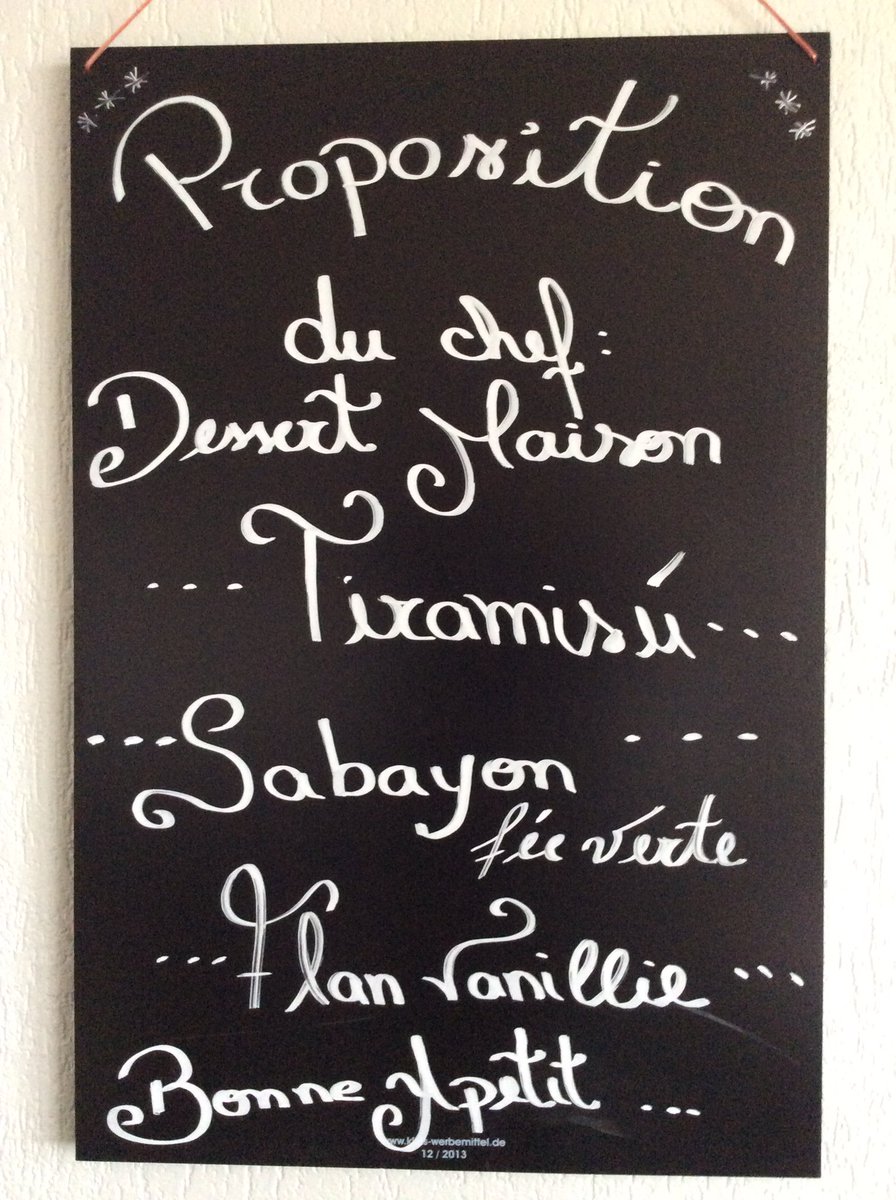 Proposition
du chef:
Dessert Maison
... Tiramisú ...
... Sabayon ...
fée verte
... Flan Vanillie ...
Bonne Apetit ...
12 / 2013